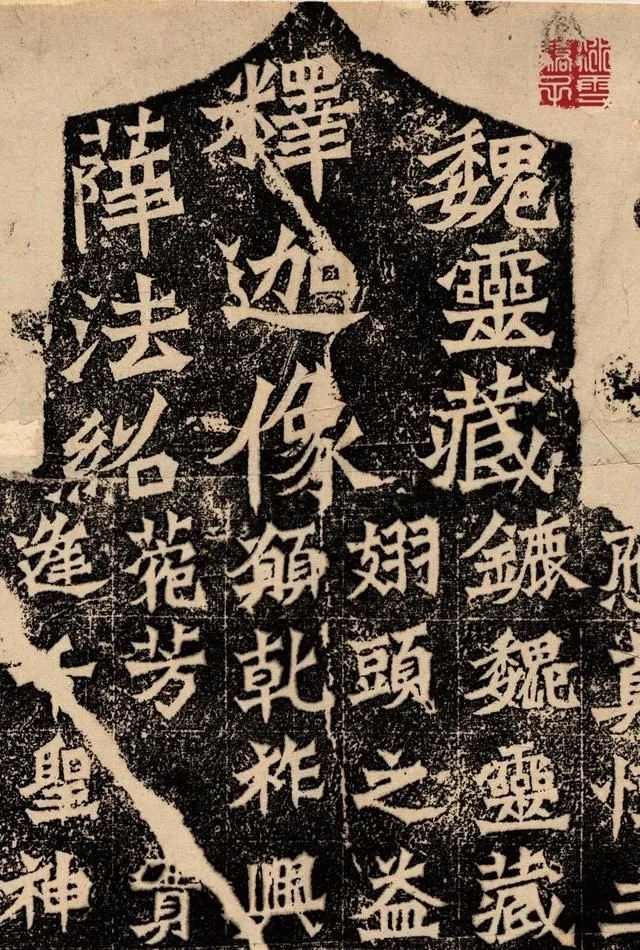 魏靈藏
釋迦像
薛法紹
真
鑣魏靈藏
翅頭之益
願乾祚興
芳
逢千聖神